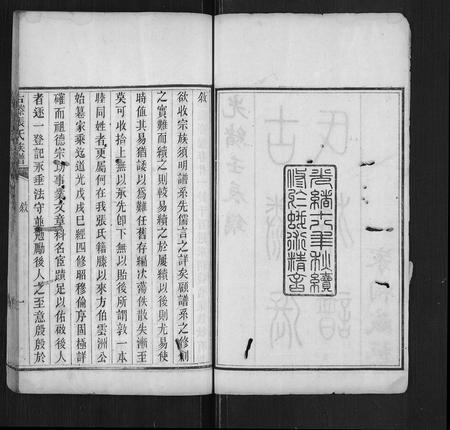 光緒十八年秋續
修於蛾術精舍
敘
欲收宗族須明譜系先儒言之詳矣顧譜系之修創
之實難而續之則較易續之於屢續以後則尤易使
時值其易猶諉以爲難任舊存編次蕩佚散失漸至
莫可收拾上無以承先卽下無以貽後所謂敦一本
睦同姓者更屬何在我張氏籍滕以來方伯雲洲公
始纂家乘迄道光戊戌已經四修昭穆倫序固極詳
確而祖德宗功事業文章科名宦蹟足以佑啟後人
者逐一登記永垂法守並勉勵後人之至意殷殷於
古滕張氏族譜 敘 一